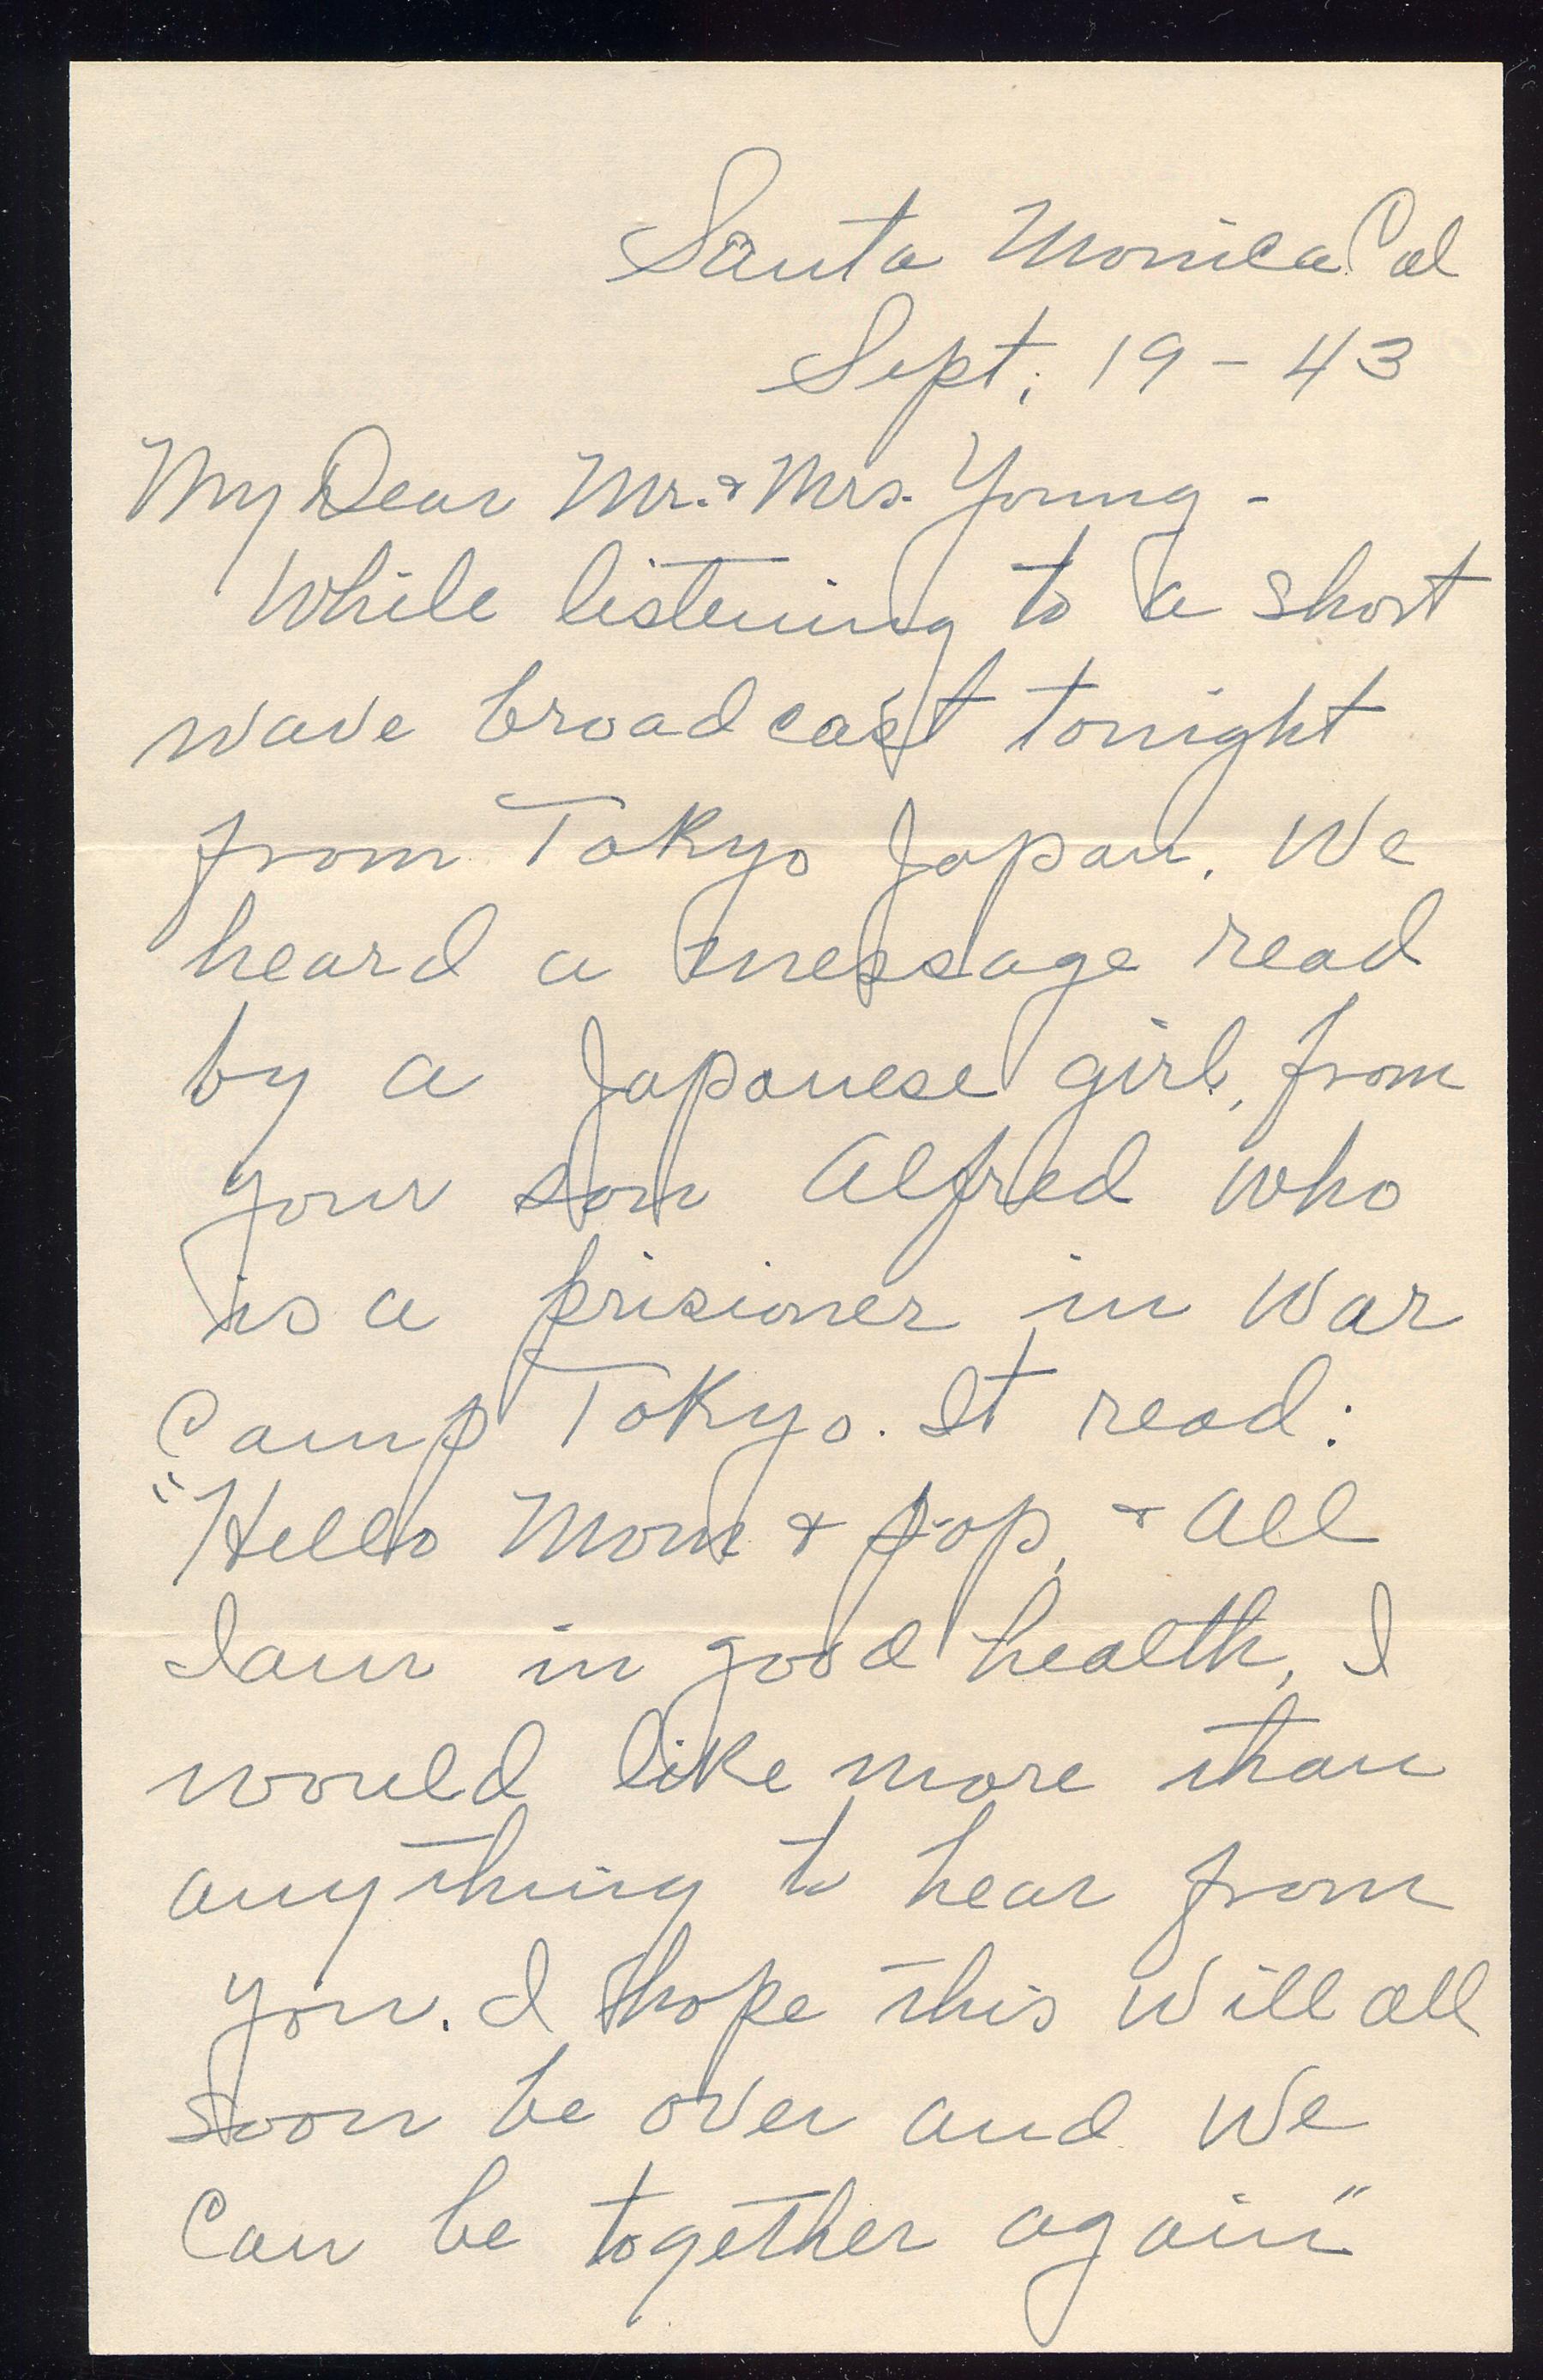 Santa Monica Cal
Sept. 19 - 43
My Dear Mr. & Mrs. Young -
While listening to a short
wave broadcast tonight
from Tokyo Japan. We
heard a message read
by a Japanese girl, from
your son Alfred who
is a prisioner in War
Camp Tokyo. It read:
"Hello Mom & Pop, & all
I am in good health, I
would like more than
anything to hear from
you. I hope this will all
soon be over and we
can be together again"